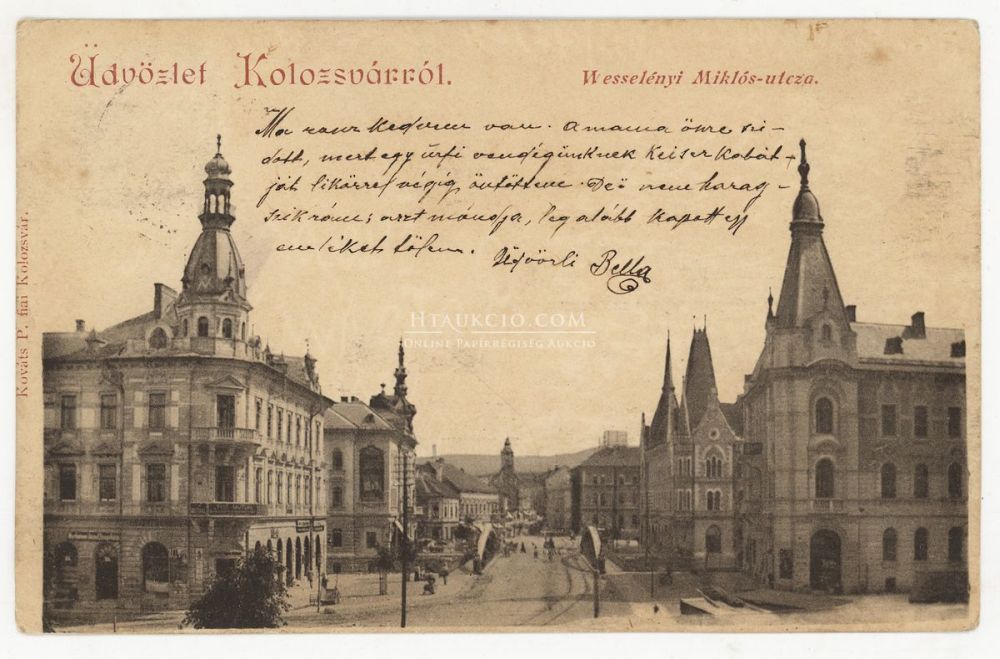 Üdvözlet Kolozsvárról.
Wesselényi Miklós-utcza.
Ma rosz kedvem van. A mama össze szi-
dott, mert egy úrfi vendégünknek Keiser kabát-
ját likőrrel végig öntöttem. De ő nem harag-
szik rám; azt mondja, legalább kapott egy
emléket tőlem.
Üdvözli Bella
Kováts P. fiai Kolozsvár.
HTAUKCIO.COM
ONLINE PAPÍRRÉGISÉG AUKCIÓ